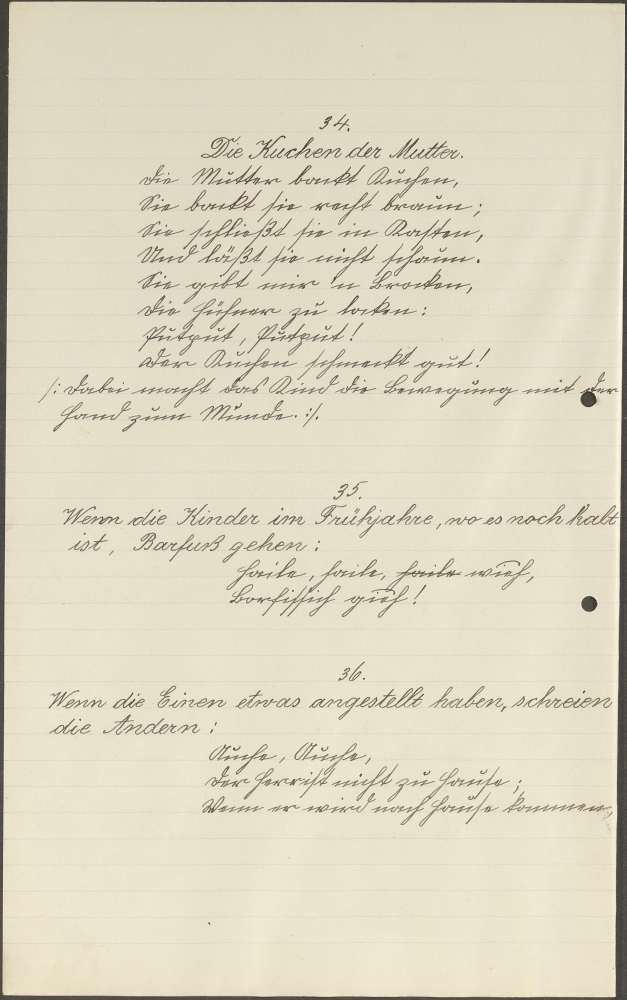 34.
Die Kuchen der Mutter.
Die Mutter backt Kuchen,
Sie backt sie recht braun;
Sie schließt sie in Kasten,
Und läßt sie nicht schaun.
Sie gibt mir 'n Brocken,
Die Hühner zu locken:
Putput, Putput!
Der Kuchen schmeckt gut!
/: Dabei macht das Kind die Bewegung mit der
Hand zum Munde. :/.
35.
Wenn die Kinder im Frühjahre, wo es noch kalt
ist, Barfuß gehen:
Haile, haile, haile wieh,
Borfissich gieh!
36.
Wenn die Einen etwas angestellt haben, schreien
die Andern:
Der Herr ist nicht zu Hause;
Wenn er wird nach Hause kommen,